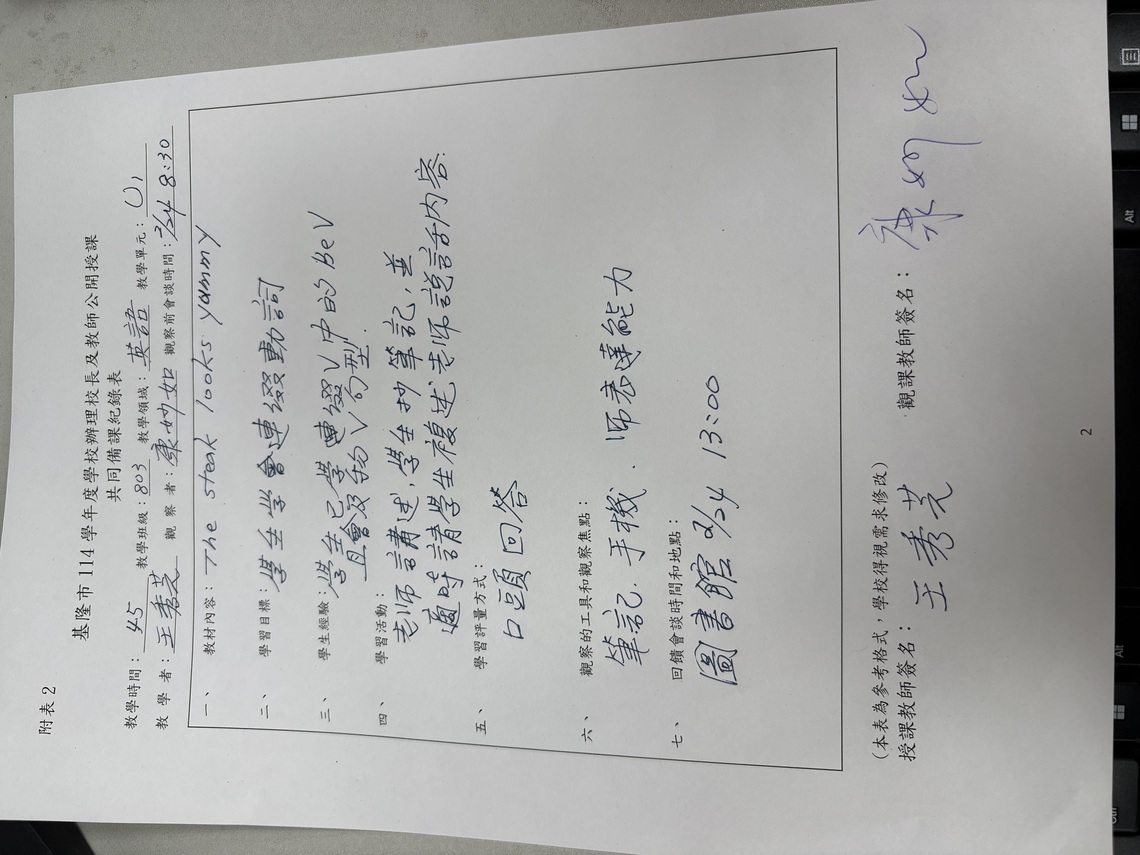 附表 2
基隆市 114 學年度學校辦理校長及教師公開授課
共同備課紀錄表
教學時間：45 教學班級：803 教學領域：英語 教學單元：U1
教 學 者：王秀芸 觀 察 者：康妙如 觀察前會談時間：2/24 8:30
一、 教材內容：The steak looks yammy
二、 學習目標：學生學會連綴動詞
三、 學生經驗：學生已學連綴V中的BeV
且會及物V句型.
四、 學習活動：
老師講述，學生抄筆記，並
適時請學生複述老師說話內容.
五、 學習評量方式：
口頭回答
六、 觀察的工具和觀察焦點：
筆記．手機．師表達能力
七、 回饋會談時間和地點：
圖書館 2/24 13:00
(本表為參考格式，學校得視需求修改)
授課教師簽名： 王秀芸 觀課教師簽名： 康妙如
2
Alt
Alt
Ctrl